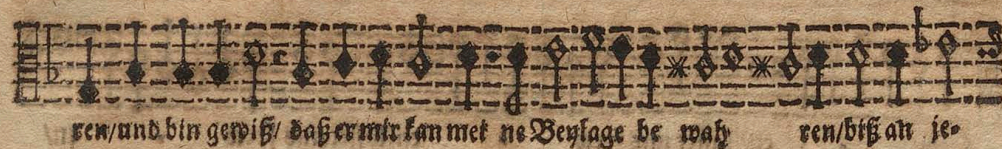 ren/und bin gewiß/ daß er mir kan mei ne Beylage be wah ren/biß an je-